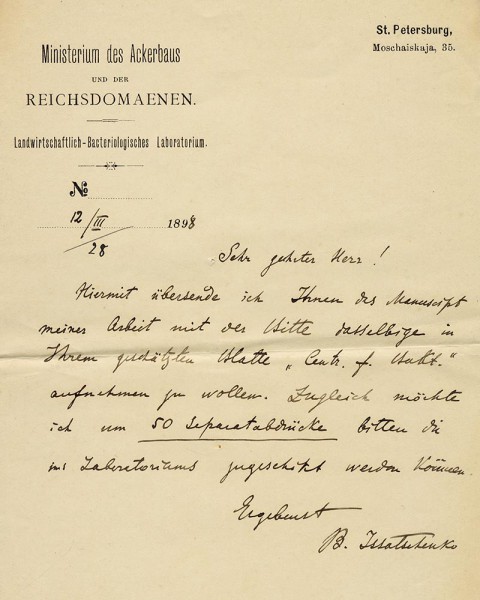 St. Petersburg,
Moschaiskaja, 35.
Ministerium des Ackerbaus
UND DER
REICHSDOMAENEN.
Landwirtschaftlich-Bacteriologisches Laboratorium.
№
12/III 1898
28
Sehr geehrter Herr!
Hiermit übersende ich Ihnen das Manuscript
meiner Arbeit mit der Bitte dasselbige in
Ihrem geschätzten Blatte „Centr. f. Bakt.“
aufnehmen zu wollen. Zugleich möchte
ich um 50 Separatabdrücke bitten die
ins Laboratoriums zugeschikt werden können.
Ergebenst
B. Issatschenko